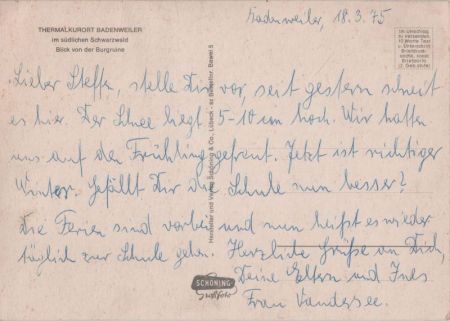 Badenweiler, 18.3.75
THERMALKURORT BADENWEILER
im südlichen Schwarzwald
Blick von der Burgruine
Im Umschlag
zu versenden.
10 Worte Text
u. Unterschrift
Briefdruck-
sache, sonst
Briefporto
Lieber Steffen, stelle Dir vor, seit gestern schneit
es hier. Der Schnee liegt 5-10 cm hoch. Wir hatten
uns auf den Frühling gefreut. Jetzt ist richtiger
Winter. Gefällt Dir die Schule nun besser?
Die Ferien sind vorbei und nun heißt es wieder
täglich zur Schule gehen. Herzliche Grüße an Dich,
Deine Eltern und Ines
Frau Vandersee.
Hersteller und Verlag Schöning & Co., Lübeck
SCHÖNING